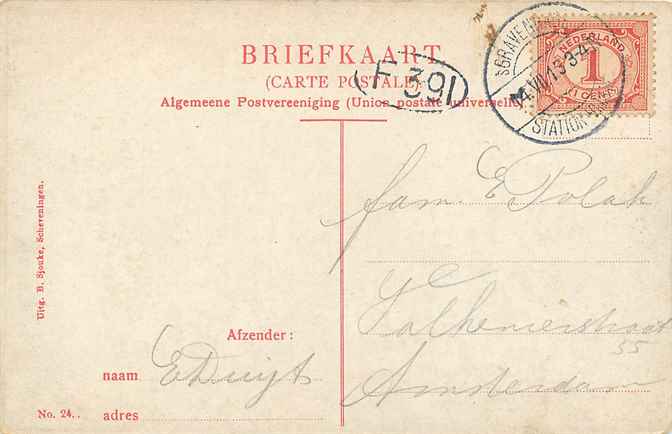 BRIEFKAART
(CARTE POSTALE)
Algemeene Postvereeniging (Union postale universelle)
F 391
'SGRAVENHAGE
VII 13 3-4
STATION
NEDERLAND
1
CENT
fam. E Polak
Valkenierstraat
55
Amsterdam
Uitg. B. Sjouke, Scheveningen.
Afzender:
naam E Duijts
No. 24.. adres